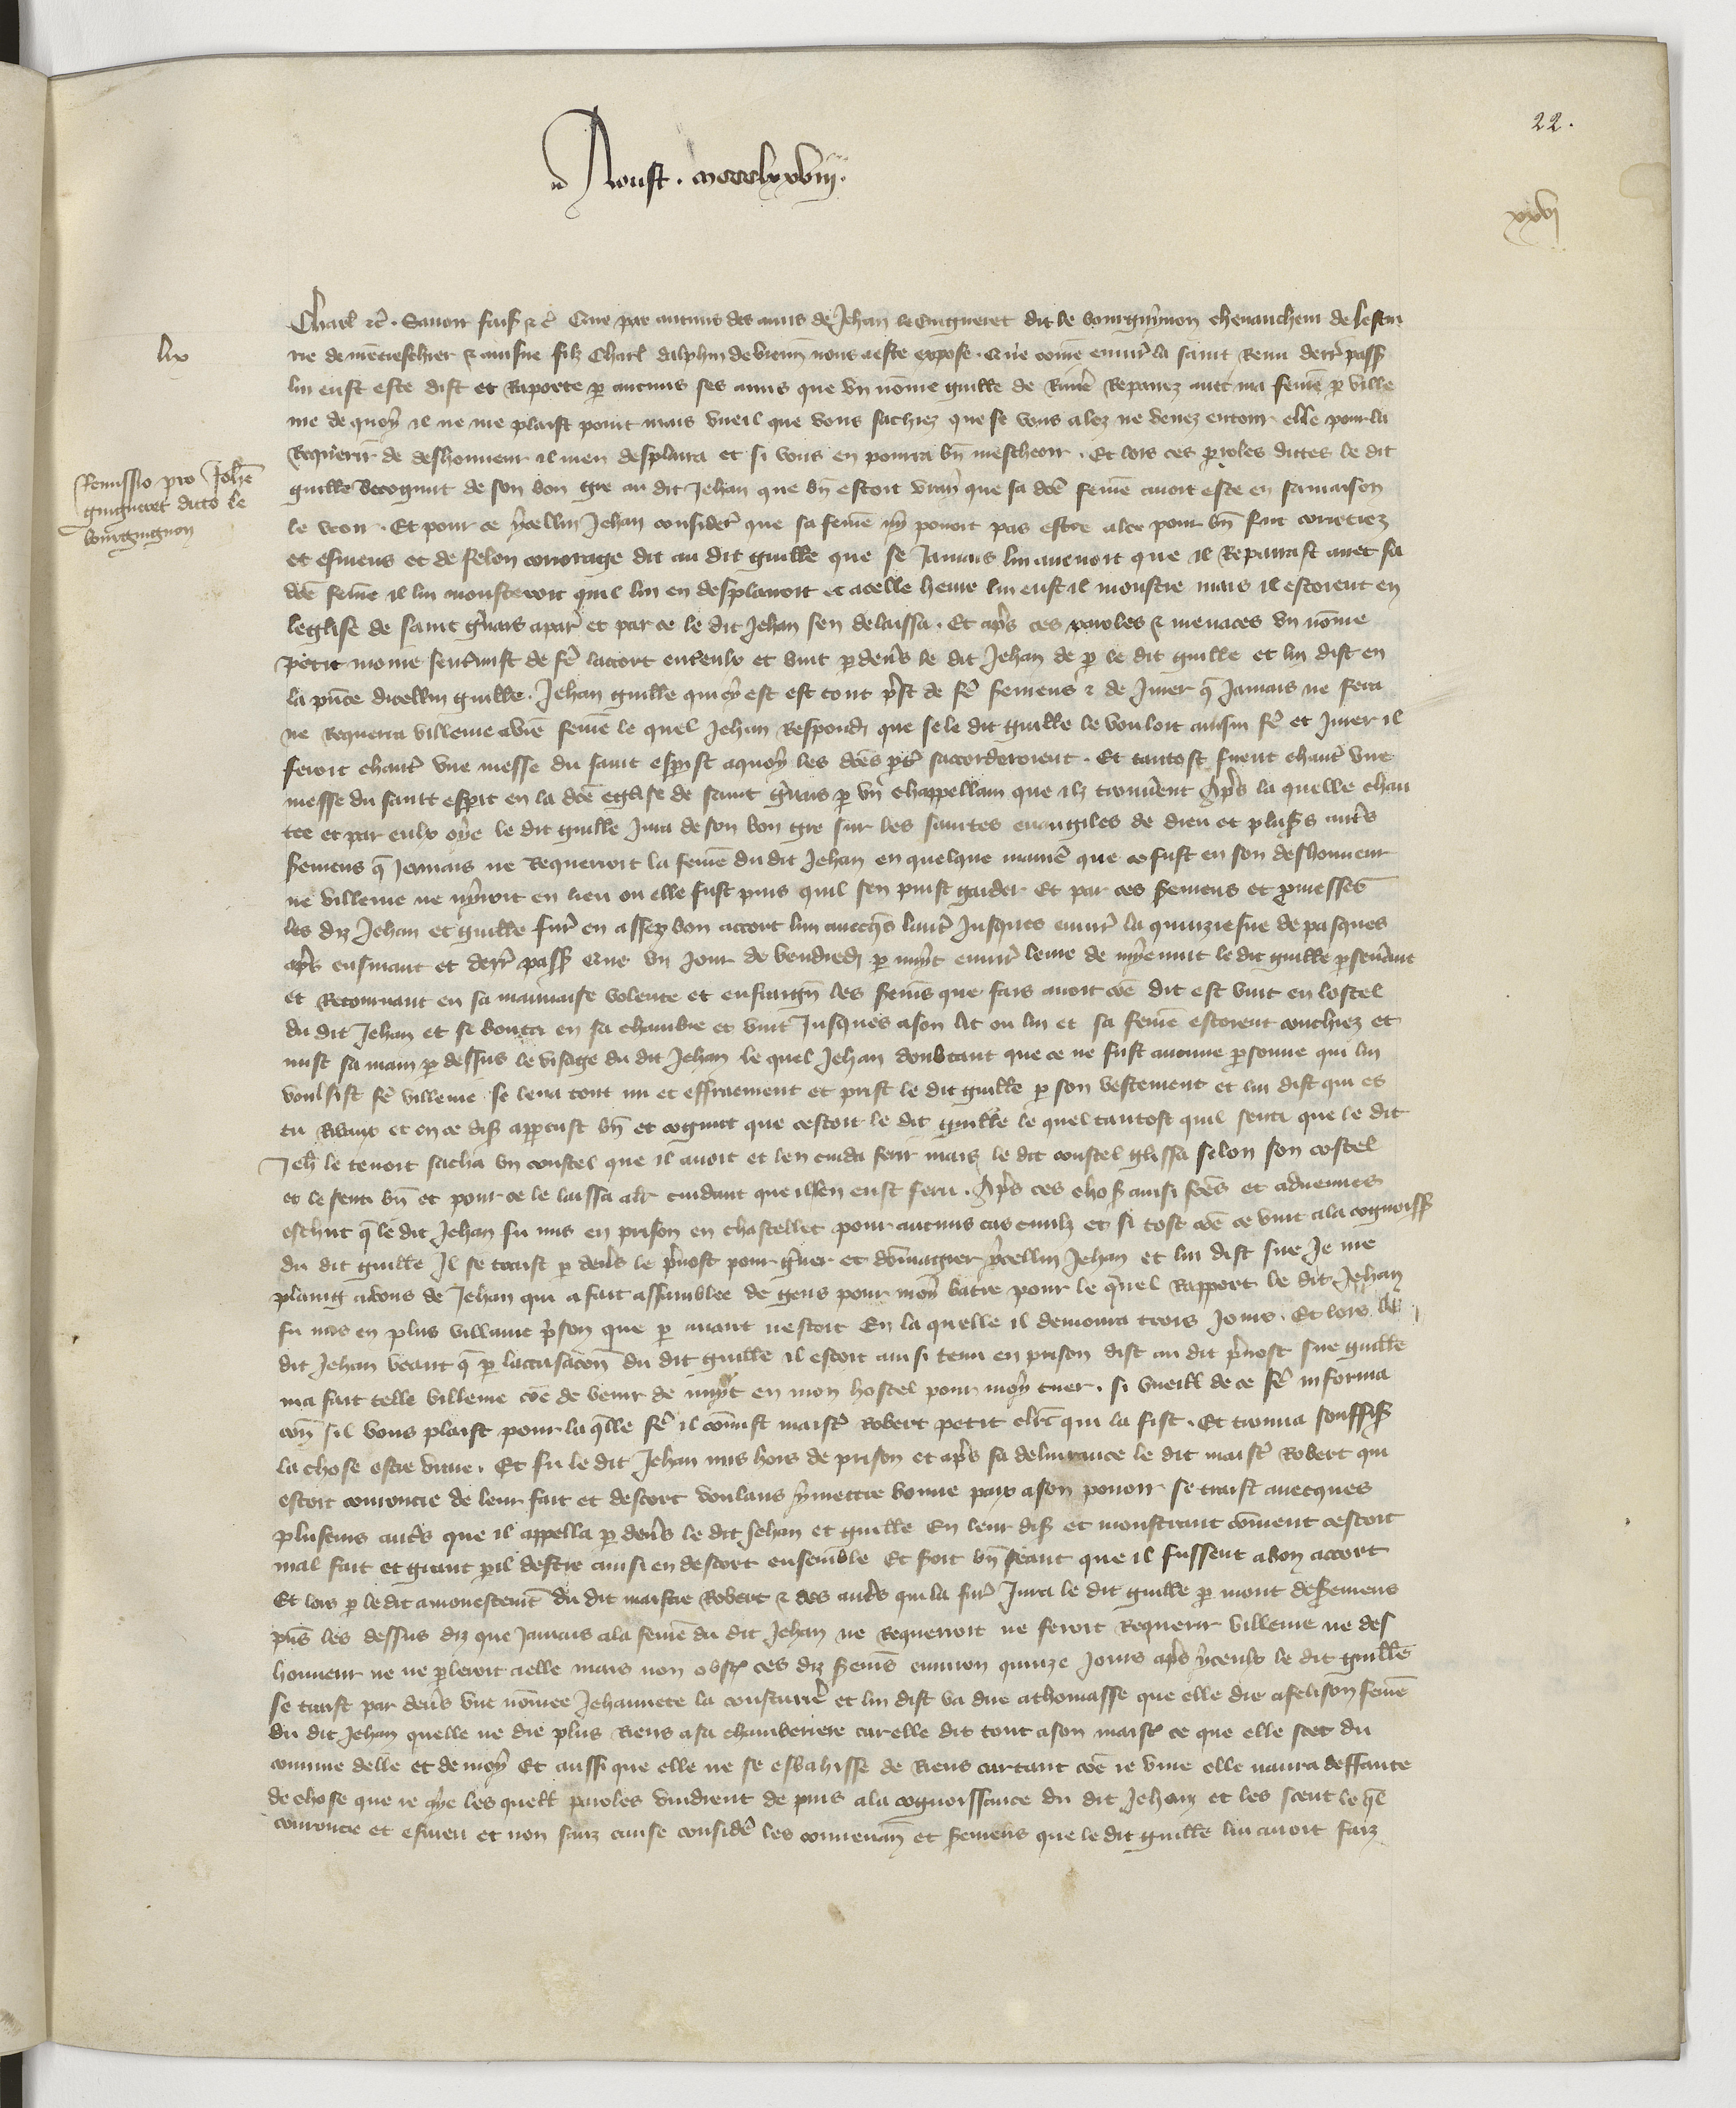 22.
Aoust . mccclxxviii.
xxvi
Charl etc̃ . Savoir fais̃ etc̃ Que par aucuns des amis de Jehan le Guigneret dit le bourguignon chevaucheur de lescui
rie de nr̃e treschier & ainsne filz Charl dalphin de vienñ nous a este expose . Que com̃e envir̃ la saint Remi derr̃ pass̃
lix
lui eust este dist et Raporte ꝑ aucuns ses amis que un nom̃e guille de Repairez avec ma fem̃e ꝑ ville
nie de quoy il ne me plaist point mais vueil que vous sachiez que se vous alez ne venez entour elle pour la
Requerir de deshonneur il men desplaira et si vous en pourra bñ mescheoir . Et lors ces ꝑoles dictes le dit
Remissio pro Joh̃e
guigneret dicto le
bourguignon
guille Recognut de son bon gre au dit Jehan que bñ estoit vray que sa dc̃e fem̃e avoit este en sa maison
le veon . Et pour ce ycellui Jehan consider̃ que sa fem̃e ny povoit pas estre alee pour bñ fut courrciez
et esmeus et de felon courage dit au dit guille que se Jamais lui avenoit que il Repairast avec sa
dc̃e fem̃e il lui monsteroit quil lui en desplairoit et a celle heure lui eust il monstre mais il estoient en
leglise de saint g̃vais a par̃ et par ce le dit Jehan sen delaissa . Et apr̃s ces paroles & menaces un nom̃e
petit moine sentremist de fẽ laccort entreulx et vint ꝑ devs̃ le dit Jehan de ꝑ le dit guille et lui dist en
la pñce dicellui guille . Jehan guille qui cy est est tout pr̃st de fẽ seremens & de Jurer q̃ Jamais ne fera
ne Requerra villenie a vr̃e fem̃e le quel Jehan Respondi que se le dit guille le vouloit ainsin fẽ et Jurer il
feroit chant̃ une messe du saint esperist a quoy les dc̃es pt̃ies saccorderoient . Et tantost firent chant̃ une
messe du saint esperit en la dc̃e eglise de saint g̃vais ꝑ un chappellain que ilz trouverent Apr̃s la quelle chan
tee et par eulx oye le dit guille Jura de son bon gre sur les saintes euvangiles de dieu et plus̃s autr̃s
seremens q̃ Jamais ne Requerroit la fem̃e du dit Jehan en quelque manier̃ que ce fust en son deshonneur
ne villenie ne nyroit en lieu ou elle fust puis quil sen puist garder Et par ces seremens et ꝓmesses
les diz Jehan et guille fur̃ en assez bon accort lun avecq̃s lautr̃ Jusques envir̃ la quinziesme de pasques
apr̃s ensuiant et derr̃ pass̃ Que un Jour de vendredi ꝑ nuyt envir̃ leure de myenuit le dit guille ꝑseverant
et Retournant en sa mauvaise volente et enfraign̄ les serem̃s que fais avoit com̃e dit est vint en lostel
du dit Jehan et se bouta en sa chambre et vint Jusques a son lit ou lui et sa fem̃e estoient couchiez et
mist sa main ꝑ dessus le visage du dit Jehan le quel Jehan doubtant que ce ne fust aucune ꝑsonne qui lui
voulsist fẽ villenie se leva tout nu et effraement et prist le dit guille ꝑ son vestement et lui dist qui es
tu Ribaut et en ce dis̃ apperçust bñ et cognut que cestoit le dit guille le quel tantost quil senti que le dit
Jeh̃ le tenoit sacha un coustel que il avoit et len cuida ferir mais le dit coustel glissa selon son costel
et le senti bñ et pour ce le laissa alr̃ cuidant que il len eust feru . Apr̃s ces chos̃ ainsi fc̃es et advenues
eschut q̃ le dit Jehan fu mis en prison en chastellet pour aucuns cas civilz et si tost com̃e ce vint a la cognoiss̃
du dit guille Il se traist ꝑ devs̃ le pr̃vost pour g̃ver et dom̃agier ycellui Jehan et lui dist sire Je me
plaing a vous de Jehan qui a fait assemblee de gens pour moy batre pour le quel Rapport le dit Jehan
fu mis en plus villaine pr̃son que ꝑ avant nestoit En la quelle il demoura trois Jours . Et lors le
dit Jehan veant q̃ ꝑ lacusacoñ du dit guille il estoit ainsi tenu en prison dist au dit pr̃vost sire guille
ma fait telle villenie com̃e de venir de nuyt en mon hostel pour moy tuer . si vueill de ce fẽ informa
coñ sil vous plaist pour la q̃lle fẽ il com̃ist maistr̃ Robert petit clerc qui la fist . Et trouva souffis̃
la chose estre vraie . Et fu le dit Jehan mis hors de prison et apr̃s sa delivrance le dit maistr̃ Robert qui
estoit courroucie de leur fait et descort voulans y mettre bonne paix a son povoir se traist avecques
plusieurs autr̃s que il appella ꝑ devs̃ le dit Jehan et guille En leur dis̃ et monstrant com̃ent cestoit
mal fait et grant peril destre ainsi en descort ensemble Et soit bñ seant que il fussent a bon accort
Et lors ꝑ le dit amonestemt̃ du dit maistre Robert & des autr̃s qui la fur̃ Jura le dit guille ꝑ mont de seremens
pñs les dessus diz que Jamais a la fem̃e du dit Jehan ne Requerroit ne feroit Requerir villenie ne des
honneur ne ne ꝑleroit a elle mais non obst̃ ces diz serem̃s environ quinze Jours apr̃s yceulx le dit guille
se traist par devs̃ une nom̃ee Jehannete la cousturier̃ et lui dist va dire a thomasse que elle die a felison fem̃e
du dit Jehan quelle ne die plus Riens a sa chamberiere car elle dit tout a son maistr̃ ce que elle scet du
couvine delle et de moy Et aussi que elle ne se esbahisse de Riens car tant com̃e ie vive elle naura deffaute
de chose que ie aye les quelx paroles vindrent de puis a la cognoissance du dit Jehan et les sceut le q̃l
courroucie et esmeu et non sanz cause consider̃ les convenanc̃ et seremens que le dit guille lui avoit faiz